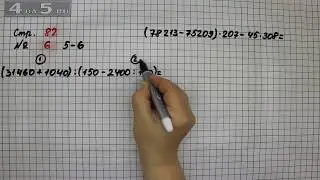 4 на 5 ТВ
Стр. 82
№ 6 5-6
(78213-75209)·207-45·308=
① ②
(31460+1040):(150-2400: )=